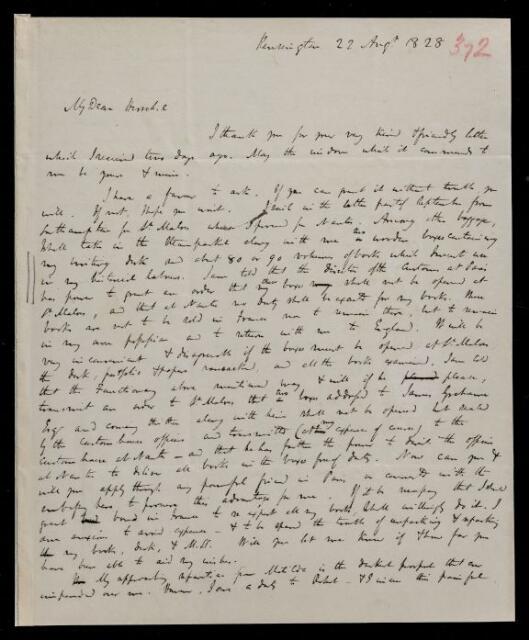 Kensington 22 Augt 1828
372
My Dear Herschel
I thank you for your very kind & friendly letter
which I received two days ago. May the wisdom which it commends to
me be yours & mine.
I have a favour to ask. If you can grant it without trouble you
will. If not, I hope you wont. I sail in the latter part of September from
Southampton for St. Malos whence I proceed for Nantes. Among other baggage,
I shall take in the Steam packet along with me two wooden boxes containing
my writing desk and about 80 or 90 volumes of books which I must use
in my historical labours. I am told that the director of the Customs at Paris
has power to grant an order that my boxes shall not be opened at
St. Malos, and that at Nantes no duty shall be exacted for my books. These
books are not to be sold in France nor to remain there, but to remain
in my own possession and to return with me to England. It will be
very inconvenient & disagreeable if the boxes must be opened at St. Malos
the desk, portfolio & papers ransacked, and all the books examined. I am told
that the functionary above mentioned may, & will if he please,
transmit an order to St. Malos that two boxes addressed to James Grahame
Esq and coming thither along with him shall not be opened but sealed
by the Custom house officers and transmitted (at my expense of course) to the
Custom house at Nantes – and that he has further the power to direct the officers
at Nantes to deliver all books in the boxes free of duty. Now can you &
will you apply through any powerful friend in Paris or connected with the
embassy here to procure this advantage for me. If it be necessary that I should
grant bond in France to re export all my books, I shall willingly do it. I
am anxious to avoid expense – & to be spared the trouble of unpacking & repacking
my books, desk, & M.SS. Will you let me know if & how far you
have been able to aid my wishes.
My approaching separation from Matilda is the darkest prospect that ever
impended over me. I owe a duty to &